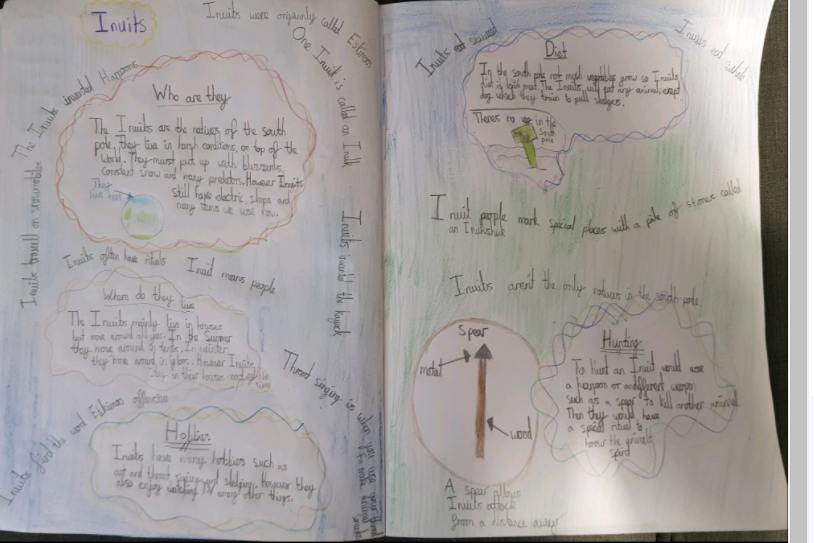 Inuits
Inuits were organnly called Eskimos
One Inuit is called an Inuk
The Inuits invented Harpoons
Who are they
The Inuits are the natives of the south
pole, they live in harsh conditions, on top of the
world. They must put up with blizzards,
constant snow and many predators. However Inuits
still have electric, shops and
many items we use now.
They
live here
Inuits travell on snowmobiles
Inuits often have rituals
Inuit means people
Inuits invented the kayack
Where do they live
The Inuits mainly live in houses
but move around all year. In the Summer
they move around in tents. In winter
they move around in igloos. However Inuits
stay in their houses most of the
time
Inuits find the word Eskimos offensive
Hobbies
Inuits have many hobbies such as
art and throat singing and sledging. However they
also enjoy watching TV among other things.
Throat singing is when you use your throat
Inuits eat seaweed
Inuits eat whale
Diet
In the south pole not much vegetables grow so Inuits
diet is most meat. The Inuits will eat any animal exept
dog which they train to pull sledges.
Theres no in the
South
pole
Inuit people mark special places with a pile of stones called
an Inukshuk
Inuits aren't the only natives in the south pole
Spear
metal
wood
A spear allows
Inuits attack
from a distance away
Hunting
To hunt an Inuit would use
a harpoon or a different weapon
such as a spear to kill another animal
Then they would have
a special ritual to
honour the animals
spirit